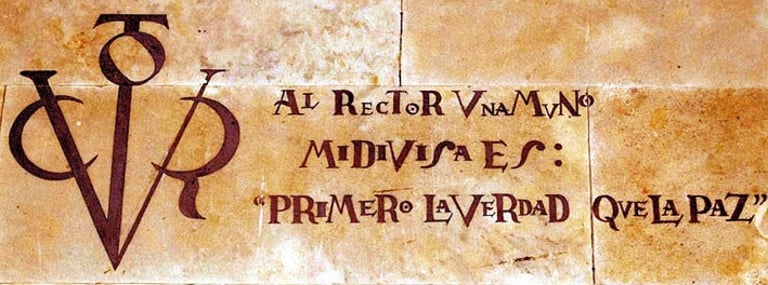 AL RECTOR VNAMVNO
MI DIVISA ES:
“PRIMERO LA VERDAD QVE LA PAZ”